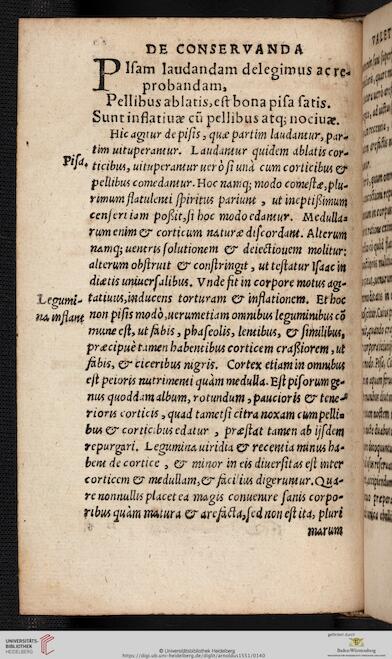 DE CONSERVANDA
PIsam laudandam delegimus ac re-
probandam,
Pellibus ablatis, est bona pisa satis.
Sunt inflatiuæ cũ pellibus atq; nociuæ.
Hic agitur de pisis, quæ partim laudantur, par-
tim uituperantur. Laudantur quidem ablatis cor-
Pisa.
ticibus, uituperantur uerò si unà cum corticibus &
pellibus comedantur. Hoc namq; modo comestæ, plu-
rimum flatulenti spiritus pariunt, ut ineptißimum
censeri iam poßit, si hoc modo edantur. Medulla-
rum enim & corticum naturæ discordant. Alterum
namq; uentris solutionem & deiectionem molitur:
alterum obstruit & constringit, ut testatur Isaac in
diætis uniuersalibus. Vnde fit in corpore motus agi-
Legumi-
na inflant
tatiuus, inducens torturam & inflationem. Et hoc
non pisis modò, uerumetiam omnibus leguminibus cõ
mune est, ut fabis, phaseolis, lentibus, & similibus,
præcipuè tamen habentibus corticem craßiorem, ut
fabis, & ciceribus nigris. Cortex etiam in omnibus
est peioris nutrimenti quàm medulla. Est pisorum ge-
nus quoddam album, rotundum, paucioris & tene-
rioris corticis, quod tametsi citra noxam cum pelli-
bus & corticibus edatur, præstat tamen ab ijsdem
repurgari. Legumina uiridia & recentia minus ha-
bent de cortice, & minor in eis diuersitas est inter
corticem & medullam, & facilius digeruntur. Qua-
re nonnullis placet ea magis conuenire sanis corpo-
ribus quàm matura & arefacta, sed non est ita, pluri
marum
UNIVERSITÄTS-
BIBLIOTHEK
HEIDELBERG
© Universitätsbibliothek Heidelberg
https://digi.ub.uni-heidelberg.de/diglit/arnoldus1551/0140
gefördert durch
Baden-Württemberg